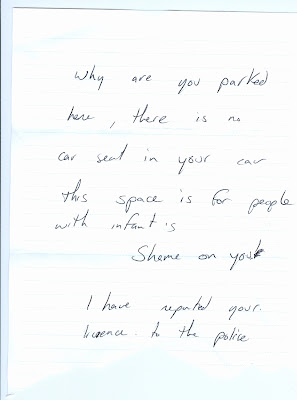 Why are you parked
here, there is no
car seat in your car
this space is for people
with infant is
Shame on you
I have reported your.
licence. to the police